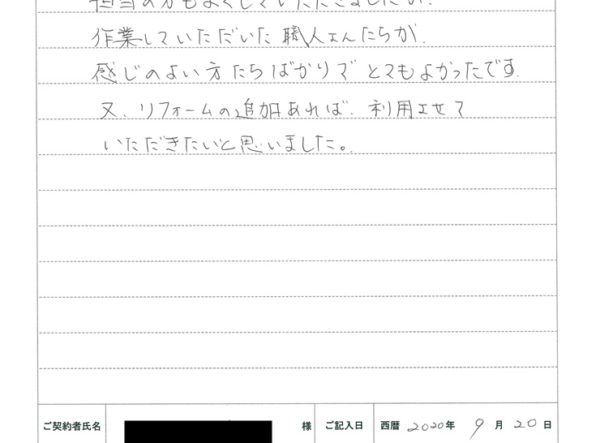 担当の方もよくしていただきましたが、
作業していただいた職人さんたちが、
感じのよい方たちばかりでとてもよかったです。
又、リフォームの追加あれば、利用させて
いただきたいと思いました。
ご契約者氏名 様 ご記入日 西暦 2020年 9月 20日